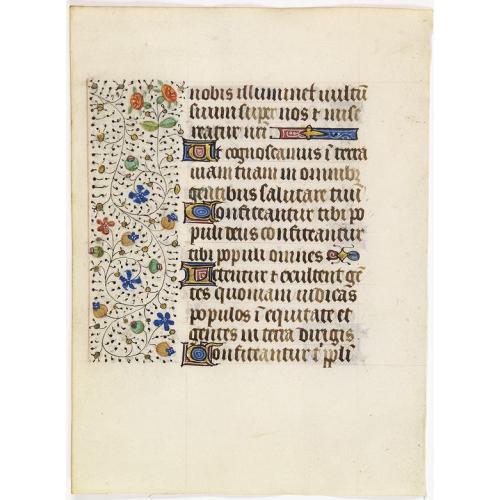 nobis illuminet vultū
suum super nos et mise
reatur nr̄i
Ut cognoscamus ī terra
uiam tuam in omnibꝫ
gentibus salutare tuū
Confiteantur tibi po
puli deus confiteantur
tibi populi omnes
Letentur et exultent gē
tes quoniam iudicas
populos ī equitate et
gentes in terra dirigis
Confiteantur t ppli